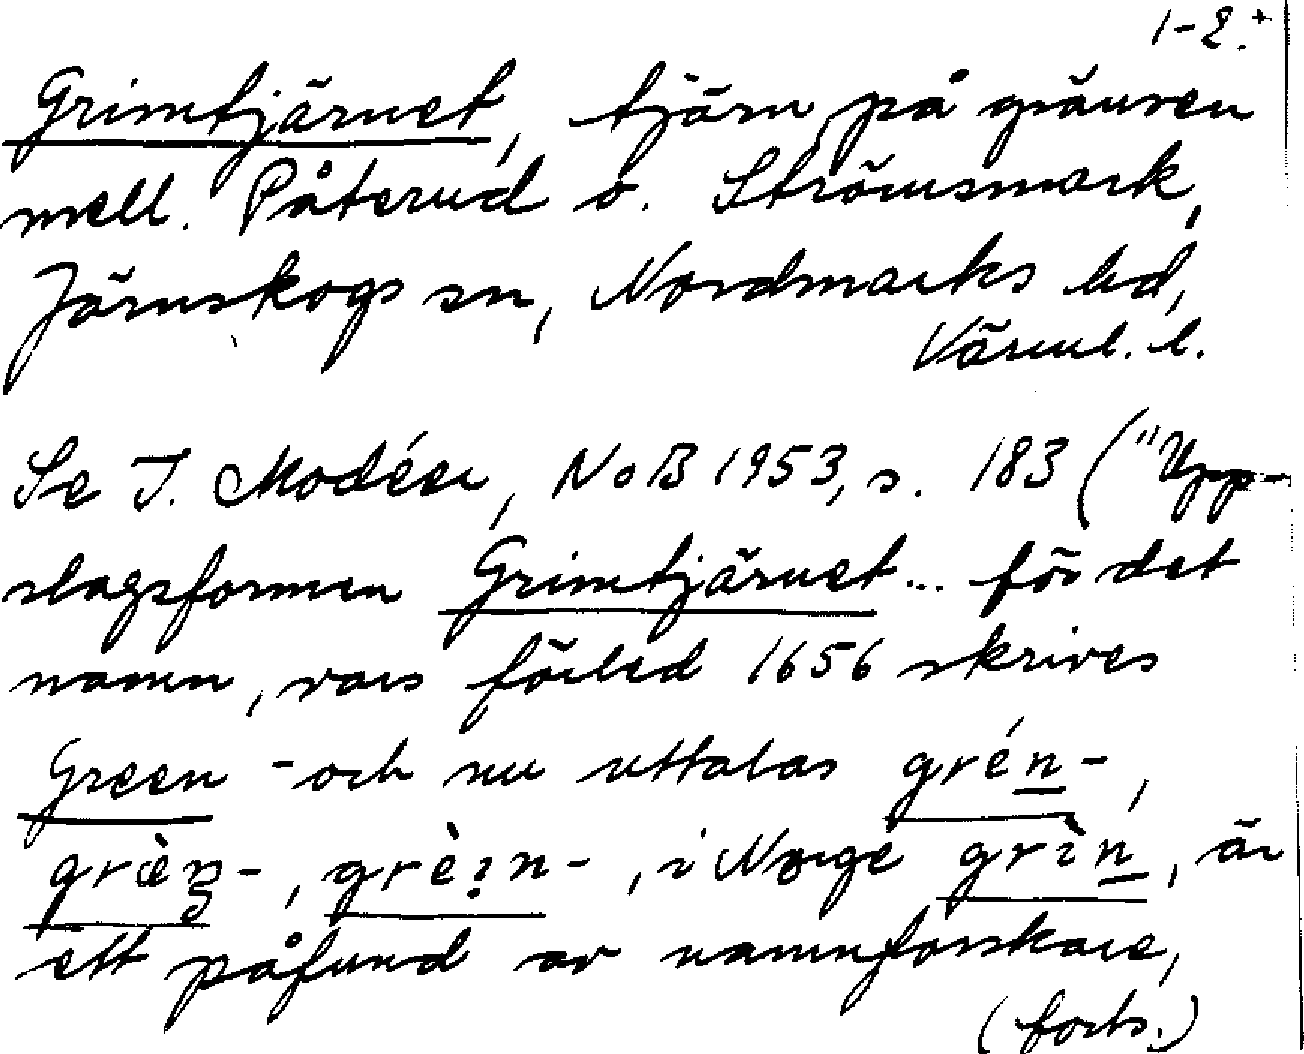 1-2.+
Grimtjärnet, tjärn på gränsen
mell. Påterud o. Strömsmark,
Järnskogs sn, Nordmarks hd,
Värml. l.
Se I. Modéer, NoB 1953, s. 183 ("Upp-
slagsformen Grimtjärnet... för det
namn, vars förled 1656 skrives
Green - och nu uttalas grén-,
-, -, i Norge grìn, är
ett påfund av namnforskare,
(forts.)